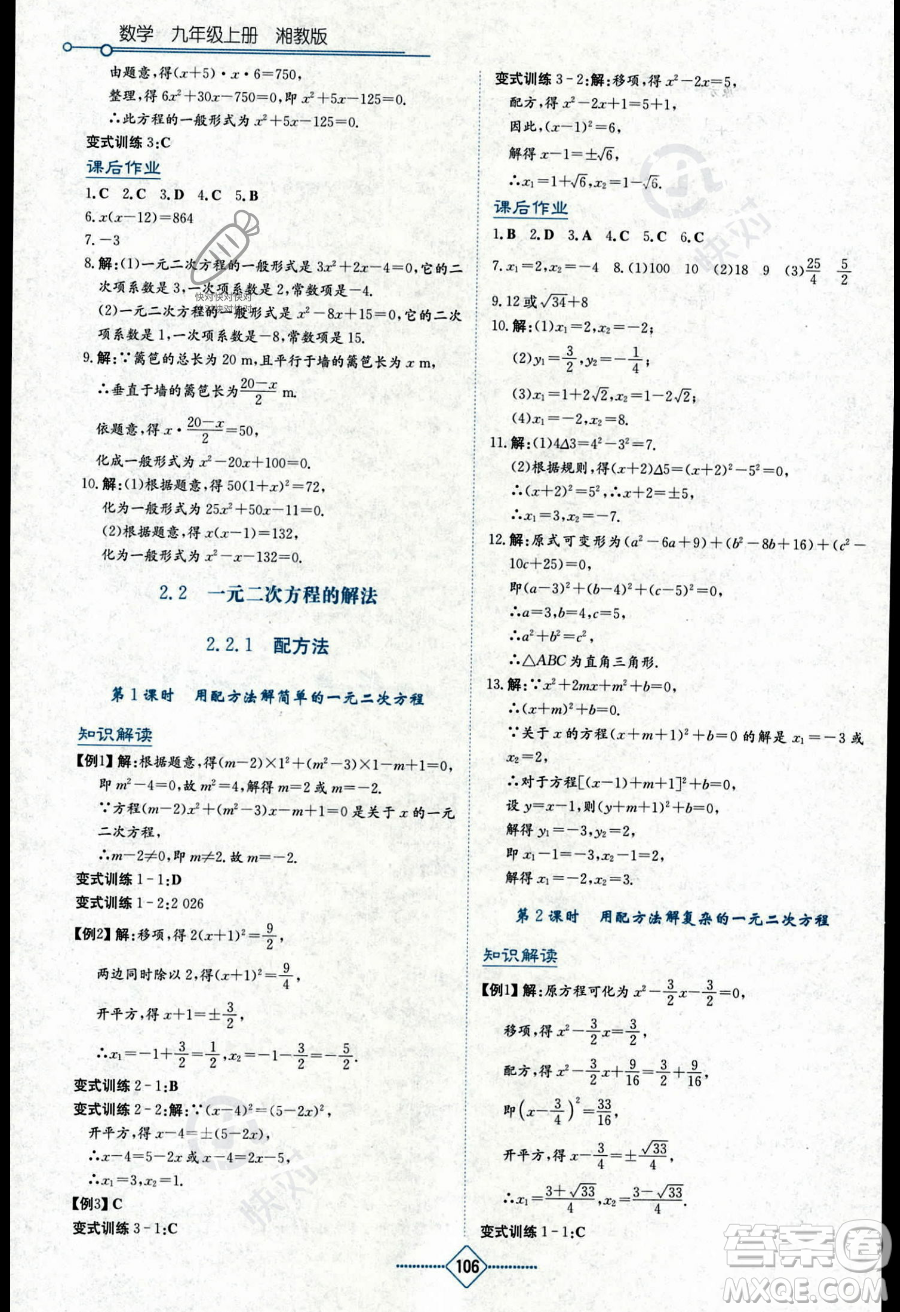 数学 九年级上册 湘教版
由题意,得(x+5)·x·6=750,
整理,得 6x²+30x-750=0,即 x²+5x-125=0.
∴此方程的一般形式为 x²+5x-125=0.
变式训练 3:C
课后作业
1.C 2.C 3.D 4.C 5.B
6.x(x-12)=864
7.-3
8.解:(1)一元二次方程的一般形式是 3x²+2x-4=0,它的二
次项系数是 3,一次项系数是 2,常数项是-4.
(2)一元二次方程的一般形式是 x²-8x+15=0,它的二次
项系数是 1,一次项系数是-8,常数项是 15.
9.解:∵篱笆的总长为 20 m,且平行于墙的篱笆长为 x m,
∴垂直于墙的篱笆长为(20-x)/2 m.
依题意,得 x·(20-x)/2=50,
化成一般形式为 x²-20x+100=0.
10.解:(1)根据题意,得 50(1+x)²=72,
化为一般形式为 25x²+50x-11=0.
(2)根据题意,得 x(x-1)=132,
化为一般形式为 x²-x-132=0.
2.2 一元二次方程的解法
2.2.1 配方法
第 1 课时 用配方法解简单的一元二次方程
知识解读
【例1】解:根据题意,得(m-2)×1²+(m²-3)×1-m+1=0,
即 m²-4=0,故 m²=4,解得 m=2 或 m=-2.
∵方程(m-2)x²+(m²-3)x-m+1=0 是关于 x 的一元
二次方程,
∴m-2≠0,即 m≠2.故 m=-2.
变式训练 1-1:D
变式训练 1-2:2 026
【例2】解:移项,得 2(x+1)²=9/2,
两边同时除以 2,得(x+1)²=9/4,
开平方,得 x+1=±3/2,
∴x₁=-1+3/2=1/2,x₂=-1-3/2=-5/2.
变式训练 2-1:B
变式训练 2-2:解:∵(x-4)²=(5-2x)²,
开平方,得 x-4=±(5-2x),
∴x-4=5-2x 或 x-4=2x-5.
∴x₁=3,x₂=1.
【例3】C
变式训练 3-1:C
变式训练 3-2:解:移项,得 x²-2x=5,
配方,得 x²-2x+1=5+1,
因此,(x-1)²=6,
解得 x-1=±√6,
∴x₁=1+√6,x₂=1-√6.
课后作业
1.B 2.D 3.A 4.C 5.C 6.C
7.x₁=2,x₂=-4 8.(1)100 10 (2)18 9 (3)25/4 5/2
9.12 或√34+8
10.解:(1)x₁=2,x₂=-2;
(2)y₁=3/2,y₂=-1/4;
(3)x₁=1+2√2,x₂=1-2√2;
(4)x₁=2,x₂=8.
11.解:(1)4Δ3=4²-3²=7.
(2)根据规则,得(x+2)Δ5=(x+2)²-5²=0,
∴(x+2)²=5²,∴x+2=±5,
∴x₁=3,x₂=-7.
12.解:原式可变形为(a²-6a+9)+(b²-8b+16)+(c²-
10c+25)=0,
即(a-3)²+(b-4)²+(c-5)²=0,
∴a=3,b=4,c=5,
∴a²+b²=c²,
∴△ABC为直角三角形.
13.解:∵x²+2mx+m²+b=x²+2mx+m²+b=0,
∴(x+m)²+b=0.
∵关于 x 的方程(x+m)²+b=0 的解是 x₁=-3 或
x₂=2,
∴对于方程[(x-1)+m+1]²+b=0,
设 y=x-1,则(y+m+1)²+b=0,
解得 y₁=-3,y₂=2,
即 x-1=-3 或 x-1=2,
解得 x₁=-2,x₂=3.
第 2 课时 用配方法解复杂的一元二次方程
知识解读
【例1】解:原方程可化为 x²-3/2x-3/2=0,
移项,得 x²-3/2x=3/2,
配方,得 x²-3/2x+9/16=3/2+9/16,
即(x-3/4)²=33/16,
开平方,得 x-3/4=±√33/4,
∴x₁=(3+√33)/4,x₂=(3-√33)/4.
变式训练 1-1:C
106
快对快对快对
快对快对
快对
快对
答案卷
MXQE.COM